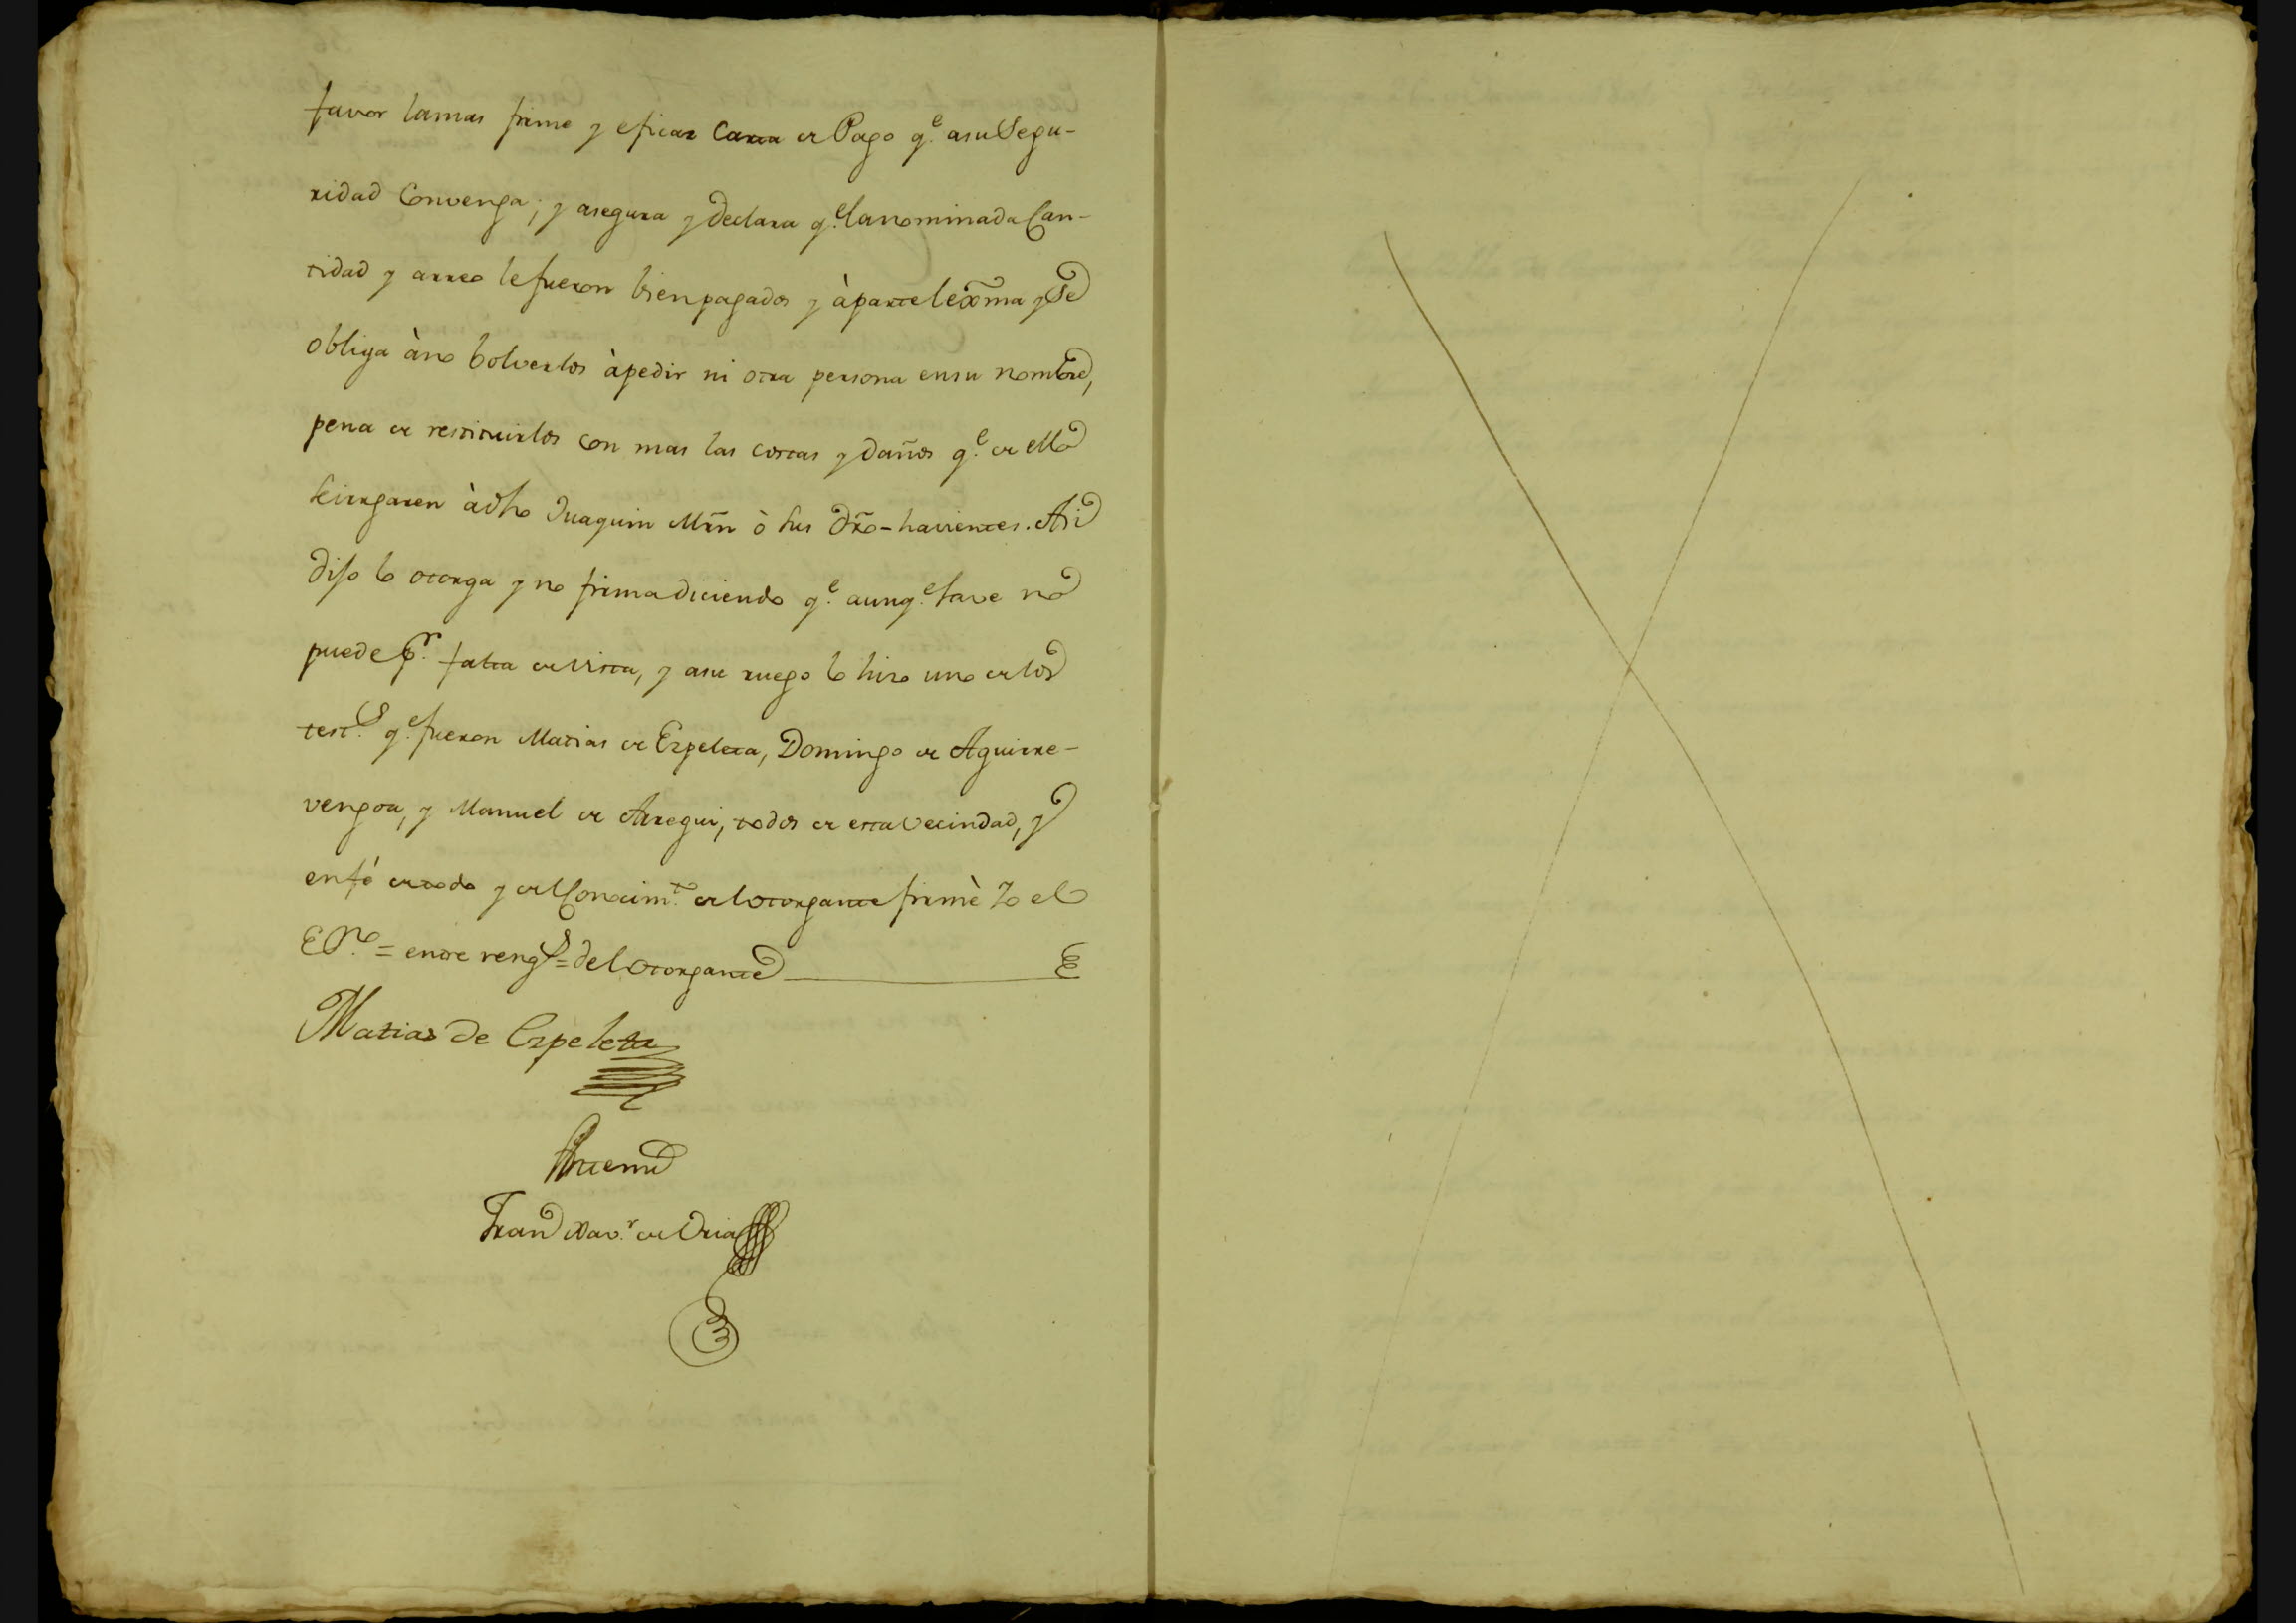 favor la mas firme y eficaz Carta de Pago q.e a su Segu-
ridad Convenga; y asegura y declara q.e la nominada Can-
tidad y arreo le fueron bien pagados y à parte lexma y Se
obliga à no bolverlos à pedir ni otra persona en su nombre,
pena de restituirlos con mas las costas y daños q.e de ello
se irrgaren à dho Juaquin Mrn ò sus dro-havientes. Asi
dijo lo otorga y no firma diciendo q.e aunq.e save no
puede p.r falta de vista, y a su ruego lo hizo uno de los
test.s q.e fueron Matias de Ezpeleta, Domingo de Aguirre-
vengoa, y Manuel de Arregui, todos de esta vecindad, y
en fé de todo y del Conocim.to del otorgante firmè Yo el
Es.no = entre reng.s = del otorgante
Matias de Ezpeleta
Ante mi
Fran.co Xav.r de Oria